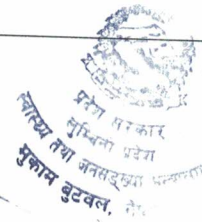 प्रदेश सरकार
लुम्बिनी प्रदेश
स्वास्थ्य तथा जनसङ्ख्या
मुकाम बुटवल,